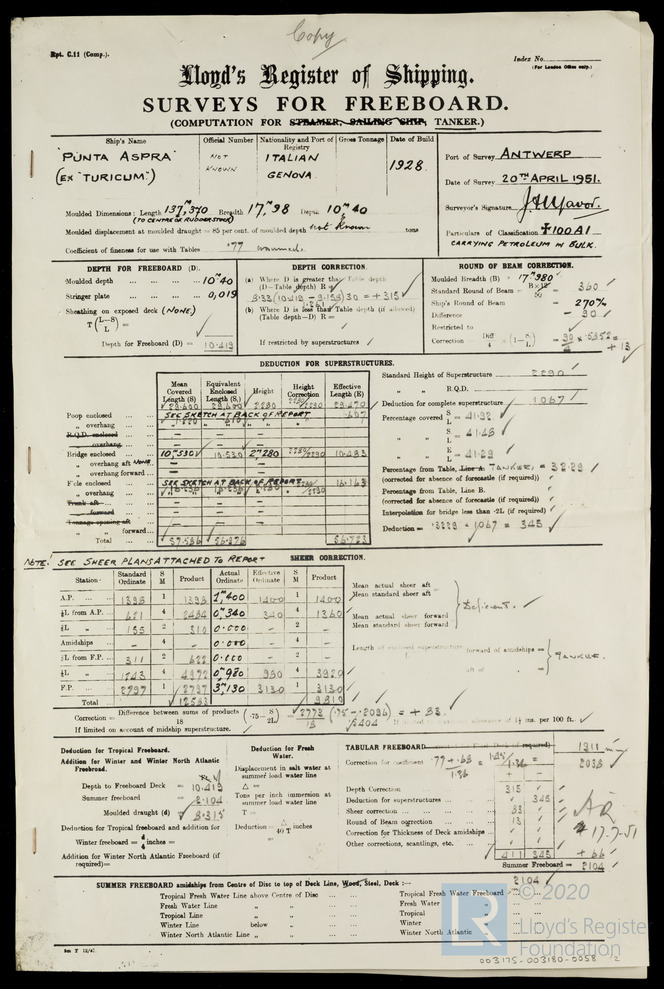 Copy
Rpt. C.11 (Comp.).
Index No.
(For London Office only.)
Lloyd's Register of Shipping.
SURVEYS FOR FREEBOARD.
(COMPUTATION FOR STEAMER, SAILING SHIP, TANKER.)
Ship's Name Official Number Nationality and Port of Registry Gross Tonnage Date of Build
"PUNTA ASPRA" NOT KNOWN ITALIAN 1928.
(EX "TURICUM") GENOVA.
Port of Survey ANTWERP
Date of Survey 20TH APRIL 1951.
Surveyor's Signature
Particulars of Classification ✠100A1
CARRYING PETROLEUM IN BULK.
Moulded Dimensions: Length 137.370 Breadth 17.98 Depth 10.40
(TO CENTRE OF RUDDERSTOCK)
Moulded displacement at moulded draught = 85 per cent. of moulded depth not known tons
Coefficient of fineness for use with Tables .77 assumed.
DEPTH FOR FREEBOARD (D).
Moulded depth 10.40
Stringer plate 0,019
Sheathing on exposed deck (NONE)
T(L-S/L) =
Depth for Freeboard (D) = 10.419
DEPTH CORRECTION.
(a) Where D is greater than Table depth
(D-Table depth) R =
8.33 (10.419 - 9.158) 30 = +315
1.261
(b) Where D is less than Table depth (if allowed)
(Table depth-D) R =
If restricted by superstructures
ROUND OF BEAM CORRECTION.
Moulded Breadth (B) 17.980
Standard Round of Beam = B×12/50 = 360
Ship's Round of Beam = 270
Difference = 90
Restricted to
Correction = Diff/4 × (1 - S/L) = 90/4 × .5852 = + 13
DEDUCTION FOR SUPERSTRUCTURES.
Mean Covered Length (S) Equivalent Enclosed Length (S₁) Height Height Correction Effective Length (E)
Poop enclosed 29.600 29.600 2280 2280/2290 29.470
SEE SKETCH AT BACK OF REPORT
„ overhang
R.Q.D. enclosed
„ overhang
Bridge enclosed 10.530 10.530 2.280 2280/2290 10.483
„ overhang aft NONE
„ overhang forward
F'cle enclosed
SEE SKETCH AT BACK OF REPORT
„ overhang
Trunk aft
„ forward
Tonnage opening aft
„ forward
Total 57.586 56.976 56.723
Standard Height of Superstructure 2290
„ „ R.Q.D.
Deduction for complete superstructure 1067
Percentage covered S/L = 41.92
„ „ S₁/L = 41.48
„ „ E/L = 41.29
Percentage from Table, Line A. TANKER. = 32.29
(corrected for absence of forecastle (if required))
Percentage from Table, Line B.
(corrected for absence of forecastle (if required))
Interpolation for bridge less than .2L (if required)
Deduction = .3229 × 1067 = 345
NOTE: SEE SHEER PLANS ATTACHED TO REPORT
SHEER CORRECTION.
Station Standard Ordinate S M Product Actual Ordinate Effective Ordinate S M Product
A.P. 1398 1 1398 1.400 1400 1 1400
⅙L from A.P. 621 4 2484 0.340 340 4 1360
⅓L „ 155 2 310 0.000 - 2 -
Amidships - 4 - 0.000 - 4 -
⅓L from F.P. 311 2 622 0.000 - 2 -
⅙L „ 1243 4 4972 0.980 980 4 3920
F.P. 2797 1 2797 3.130 3130 1 3130
Total 12583 9810
Mean actual sheer aft
Mean standard sheer aft =
Mean actual sheer forward
Mean standard sheer forward =
Deficient.
Length of enclosed superstructure forward of amidships =
„ „ aft of „ =
TANKER.
Correction = Difference between sums of products/18 (.75 - S/2L) = 2773/18 (.75 - .2096) = + 83.
.5404
If limited on account of midship superstructure.
Deduction for Tropical Freeboard.
Addition for Winter and Winter North Atlantic Freeboard.
Depth to Freeboard Deck = 10.419
Summer freeboard = 2.104
Moulded draught (d) = 8.315
Deduction for Tropical freeboard and addition for
Winter freeboard = d/4 inches =
Addition for Winter North Atlantic Freeboard (if required) =
Deduction for Fresh Water.
Displacement in salt water at summer load water line
Δ =
Tons per inch immersion at summer load water line
T =
Deduction = Δ/40 T inches
=
TABULAR FREEBOARD 1911
Correction for coefficient .77 + .68/1.36 = 1.45/1.36 = 2038
+ -
Depth Correction 315
Deduction for superstructures 345
Sheer correction 83
Round of Beam correction 13
Correction for Thickness of Deck amidships
Other corrections, scantlings, etc.
411 345 + 66
Summer Freeboard = 2104
17-7-51
SUMMER FREEBOARD amidships from Centre of Disc to top of Deck Line, Wood, Steel, Deck :- 2104
Tropical Fresh Water Line above Centre of Disc
Fresh Water Line „ „
Tropical Line „ „
Winter Line below „
Winter North Atlantic Line „ „
Tropical Fresh Water Freeboard
Fresh Water „
Tropical „
Winter „
Winter North Atlantic „
LR
© 2020
Lloyd's Register
Foundation
003175-003180-0058 2